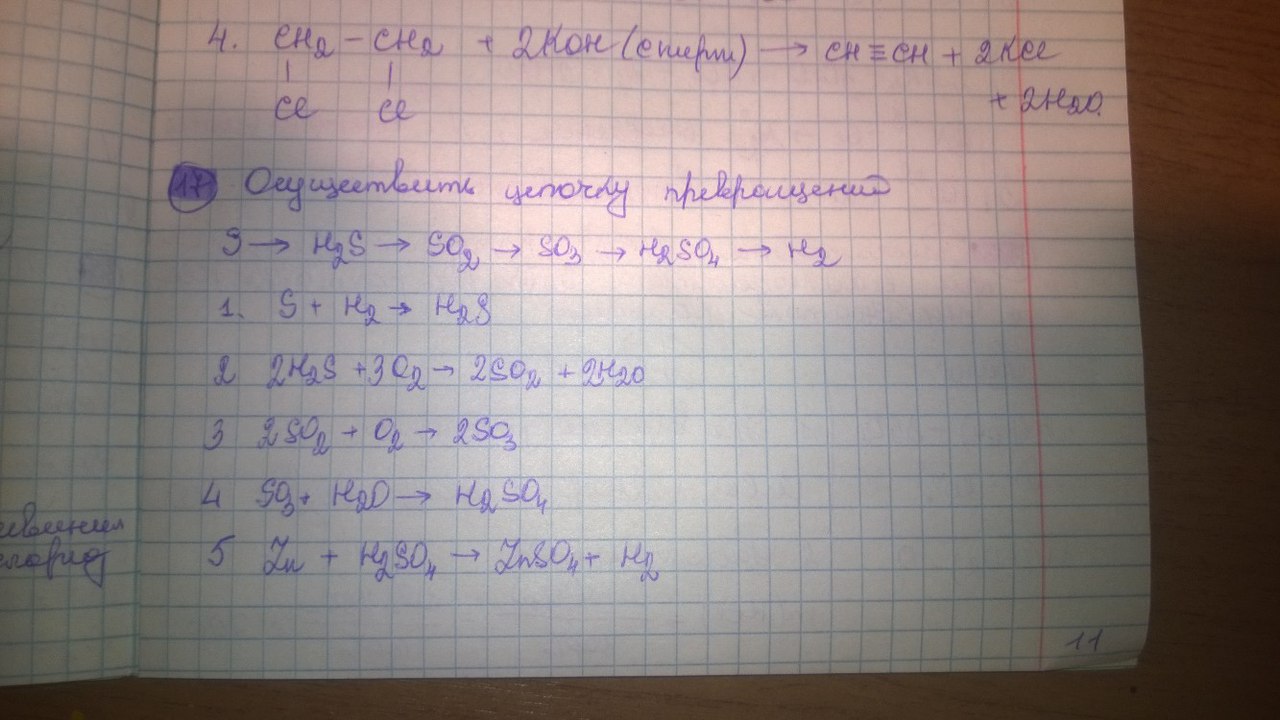 4. CH2 - CH2 + 2KOH (спирт) → CH≡CH + 2KCl
| |
Cl Cl + 2H2O.
17 Осуществить цепочку превращений
S → H2S → SO2 → SO3 → H2SO4 → H2
1. S + H2 → H2S
2 2H2S + 3O2 → 2SO2 + 2H2O
3 2SO2 + O2 → 2SO3
4 SO3 + H2O → H2SO4
5 Zn + H2SO4 → ZnSO4 + H2
11